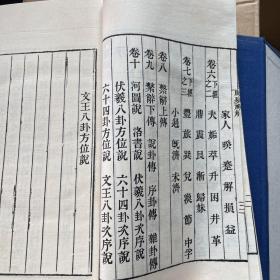 家人 睽 蹇 解 損 益
卷六之三 下經 夬 姤 萃 升 困 井 革
鼎 震 艮 漸 歸妹
卷七之三 下經 豐 旅 巽 兌 渙 節 中孚
小過 既濟 未濟
卷八 繫辭上傳
卷九 繫辭下傳 說卦傳 序卦傳 雜卦傳
卷十 河圖說 洛書說 伏羲八卦次序說
伏羲八卦方位說 六十四卦次序說
六十四卦方位說 文王八卦次序說
文王八卦方位說